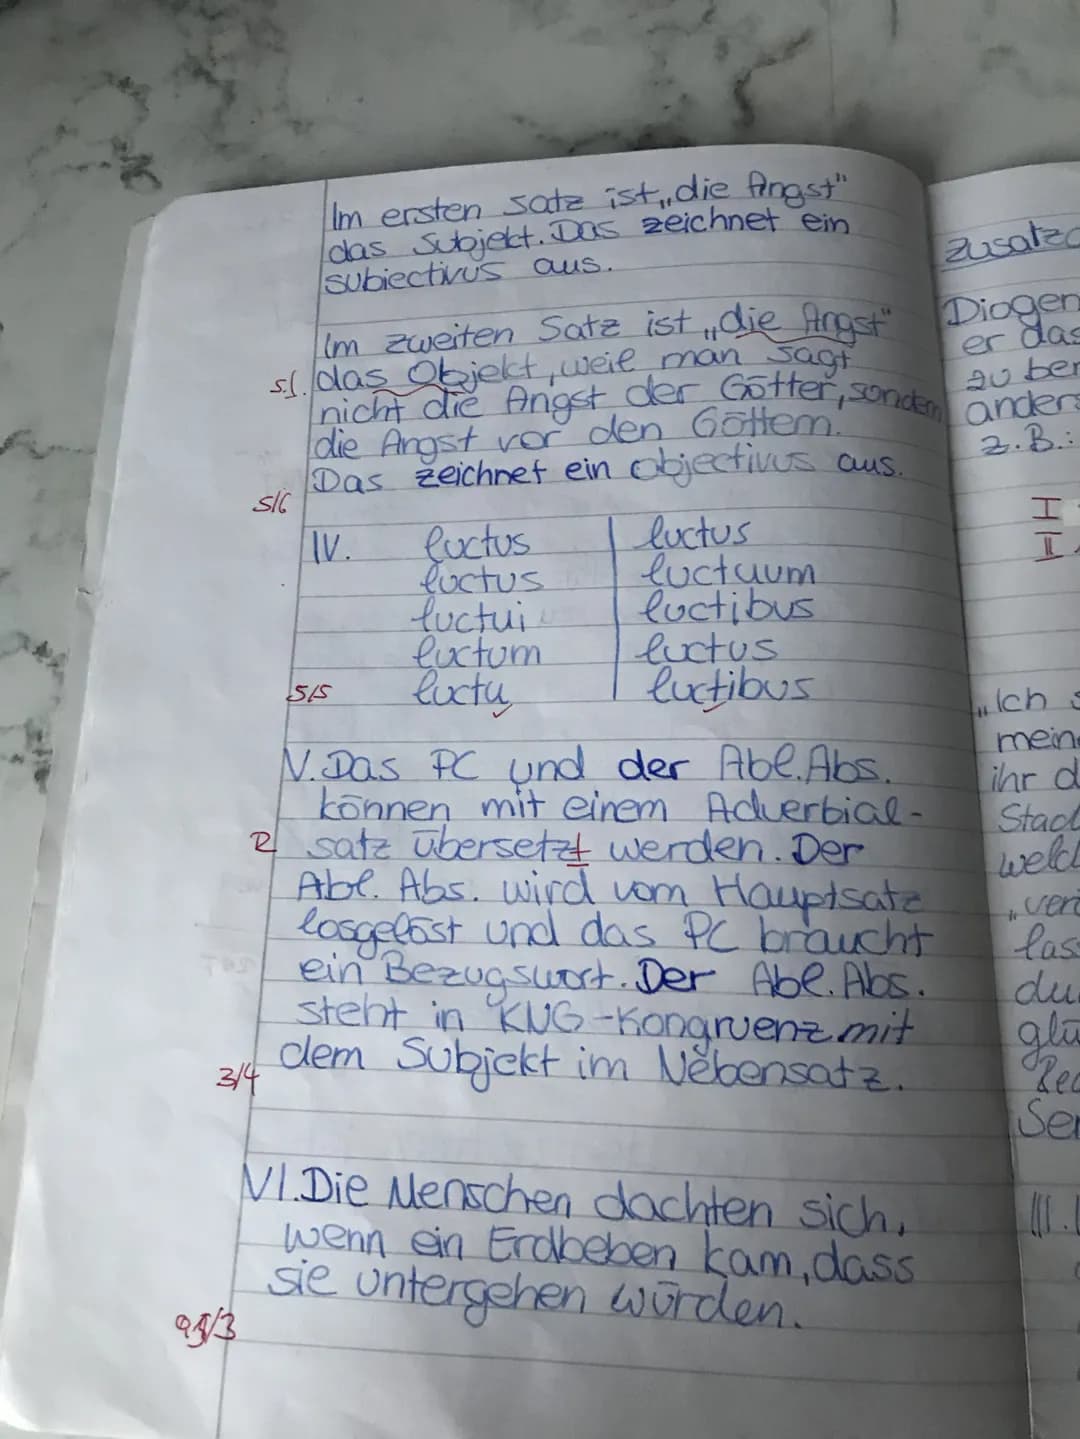 Im ersten Satz ist „die Angst"
das Subjekt. Das zeichnet ein
subiectivus aus.
Im zweiten Satz ist „die Angst"
s.l. das Objekt, weil man sagt
nicht die Angst der Götter, sondern
die Angst vor den Göttern.
Das zeichnet ein objectivus aus.
5/6
IV. luctus | luctus
luctus | luctuum
luctui | luctibus
luctum | luctus
5/5 luctu | luctibus
V. Das PC und der Abl. Abs.
können mit einem Adverbial-
R satz übersetzt werden. Der
Abl. Abs. wird vom Hauptsatz
losgelöst und das PC braucht
ein Bezugswort. Der Abl. Abs.
steht in KNG-Kongruenz mit
dem Subjekt im Nebensatz.
3/4
VI. Die Menschen dachten sich,
wenn ein Erdbeben kam, dass
sie untergehen würden.
/3
Diogen
er das
zu ber
anders
z. B.:
I
II
„Ich s
mein
ihr d
Stad
welc
„ver
las
du
glü
Red
Sen
III.